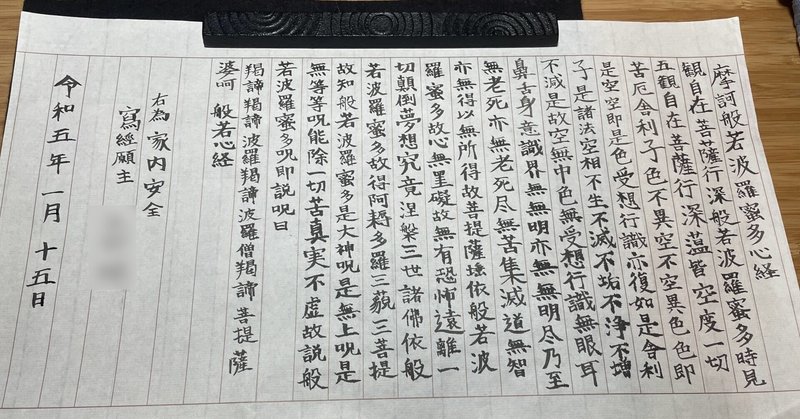 摩訶般若波羅蜜多心経
観自在菩薩行深般若波羅蜜多時見
五観自在菩薩行深薀皆空度一切
苦厄舎利子色不異空不空異色色即
是空空即是色受想行識亦復如是舎利
子是諸法空相不生不滅不垢不浄不増
不滅是故空無中色無受想行識無眼耳
鼻舌身意識界無無明亦無無明尽乃至
無老死亦無老死尽無苦集滅道無智
亦無得以無所得故菩提薩埵依般若波
羅蜜多故心無罣礙故無有恐怖遠離一
切顛倒夢想究竟涅槃三世諸佛依般
若波羅蜜多故得阿耨多羅三藐三菩提
故知般若波羅蜜多是大神呪是無上呪是
無等等呪能除一切苦真実不虚故説般
若波羅蜜多呪即説呪曰
羯諦羯諦波羅羯諦波羅僧羯諦菩提薩
婆呵 般若心経
右為 家内安全
寫經願主
令和五年一月十五日